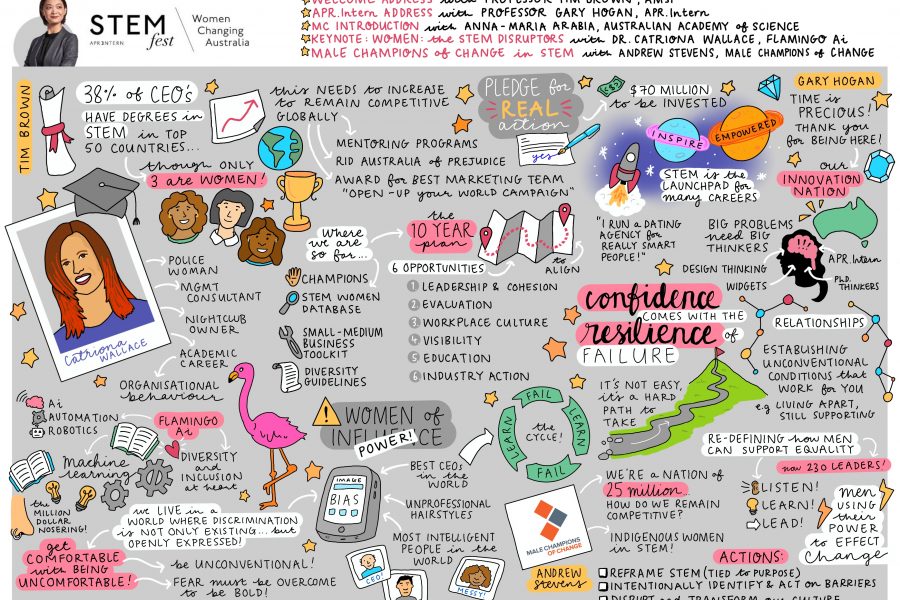 STEM
fest
APR.INTERN
Women
Changing
Australia
WELCOME ADDRESS with PROFESSOR TIM BROWN, AMSI
APR.Intern ADDRESS with PROFESSOR GARY HOGAN, APR.Intern
MC INTRODUCTION with ANNA-MARIA ARABIA, AUSTRALIAN ACADEMY of SCIENCE
KEYNOTE: WOMEN: the STEM DISRUPTORS with DR. CATRIONA WALLACE, FLAMINGO Ai
MALE CHAMPIONS OF CHANGE in STEM with ANDREW STEVENS, MALE CHAMPIONS of CHANGE
TIM BROWN
38% of CEO's
HAVE DEGREES in
STEM in TOP
50 COUNTRIES...
though ONLY
3 are WOMEN!
this NEEDS to INCREASE
to REMAIN COMPETITIVE
GLOBALLY
MENTORING PROGRAMS
RID AUSTRALIA of PREJUDICE
AWARD for BEST MARKETING TEAM
"OPEN-UP your WORLD CAMPAIGN"
PLEDGE for
REAL
action
yes
$70 MILLION
to be INVESTED
INSPIRE
EMPOWERED
STEM is the
LAUNCHPAD for
many CAREERS
GARY HOGAN
TIME is
PRECIOUS!
THANK you
for BEING HERE!
our
INNOVATION
NATION
"I RUN a DATING
AGENCY for
REALLY SMART
PEOPLE!"
BIG PROBLEMS
need BIG
THINKERS
DESIGN THINKING
WIDGETS
APR.Intern
PhD.
THINKERS
Catriona
WALLACE
POLICE
WOMAN
MGMT
CONSULTANT
NIGHTCLUB
OWNER
ACADEMIC
CAREER
ORGANISATIONAL
behaviour
Where
we are
so far...
CHAMPIONS
STEM WOMEN
DATABASE
SMALL-MEDIUM
BUSINESS
TOOLKIT
DIVERSITY
GUIDELINES
the
10 YEAR
plan
to
ALIGN
6 OPPORTUNITIES
1 LEADERSHIP & COHESION
2 EVALUATION
3 WORKPLACE CULTURE
4 VISIBILITY
5 EDUCATION
6 INDUSTRY ACTION
confidence
COMES WITH THE
resilience of
FAILURE
IT'S NOT EASY,
it's a HARD
PATH to
TAKE
RELATIONSHIPS
ESTABLISHING
UNCONVENTIONAL
CONDITIONS that
WORK for YOU
e.g LIVING APART,
STILL SUPPORTING
Ai
AUTOMATION
ROBOTICS
FLAMINGO
Ai
Machine
learning
DIVERSITY
and
INCLUSION
at heart
the
MILLION
DOLLAR
NOSERING!
we LIVE in a
WORLD WHERE DISCRIMINATION
is NOT ONLY EXISTING... but
OPENLY EXPRESSED!
get
COMFORTABLE
with BEING
UNCOMFORTABLE!
be UNCONVENTIONAL!
FEAR must be OVERCOME
to be BOLD!
WOMEN of
INFLUENCE
POWER!
IMAGE
BIAS
BEST CEOs
in the
WORLD
UNPROFESSIONAL
HAIRSTYLES
MOST INTELLIGENT
PEOPLE in the
WORLD
CEO?
MESSY!
FAIL
LEARN
FAIL
LEARN
the
CYCLE!
MALE CHAMPIONS
OF CHANGE
ANDREW
Stevens
WE'RE a NATION of
25 million...
HOW DO WE REMAIN
COMPETITIVE?
INDIGENOUS WOMEN
in STEM!
RE-DEFINING how MEN
CAN SUPPORT EQUALITY
now 230 LEADERS!
LISTEN!
LEARN!
LEAD!
men
USING
their
POWER
to EFFECT
Change
ACTIONS:
REFRAME STEM (TIED to PURPOSE)
INTENTIONALLY IDENTIFY & ACT on BARRIERS
DISRUPT and TRANSFORM our CULTURE